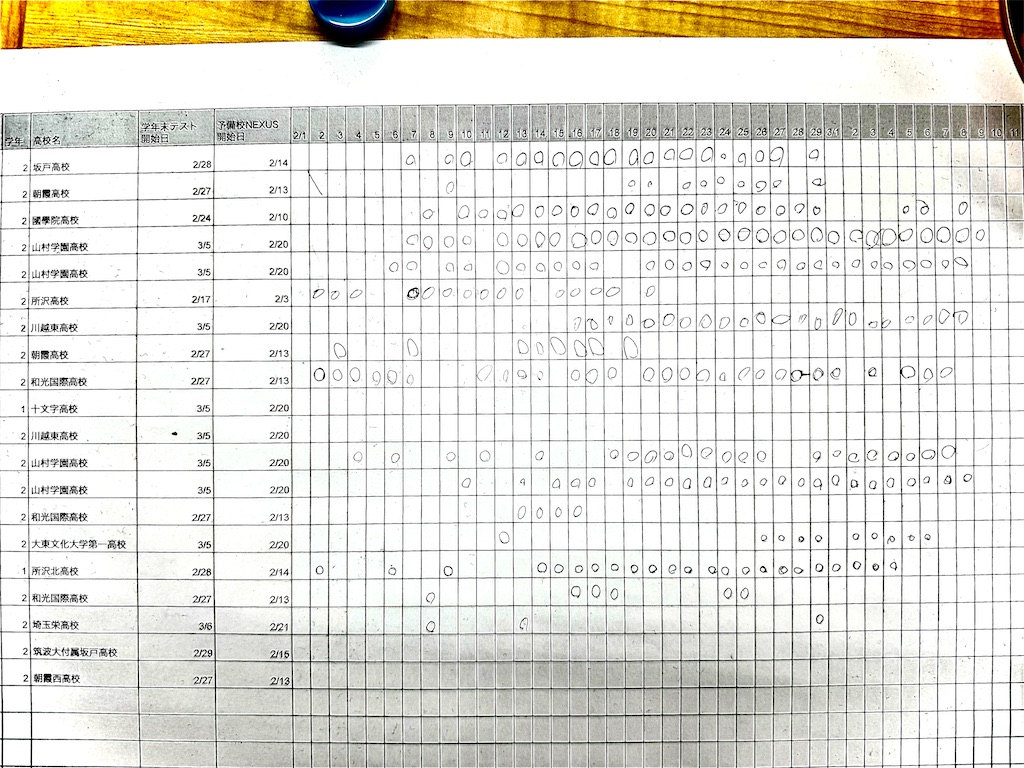 学年 高校名 学年末テスト開始日 予備校NEXUS開始日 2/1 2 3 4 5 6 7 8 9 10 11 12 13 14 15 16 17 18 19 20 21 22 23 24 25 26 27 28 29 3/1 2 3 4 5 6 7 8 9 10 11
2 坂戸高校 2/28 2/14
2 朝霞高校 2/27 2/13
2 國學院高校 2/24 2/10
2 山村学園高校 3/5 2/20
2 山村学園高校 3/5 2/20
2 所沢高校 2/17 2/3
2 川越東高校 3/5 2/20
2 朝霞高校 2/27 2/13
2 和光国際高校 2/27 2/13
1 十文字高校 3/5 2/20
2 川越東高校 3/5 2/20
2 山村学園高校 3/5 2/20
2 山村学園高校 3/5 2/20
2 和光国際高校 2/27 2/13
2 大東文化大学第一高校 3/5 2/20
1 所沢北高校 2/28 2/14
2 和光国際高校 2/27 2/13
2 埼玉栄高校 3/6 2/21
2 筑波大付属坂戸高校 2/29 2/15
2 朝霞西高校 2/27 2/13